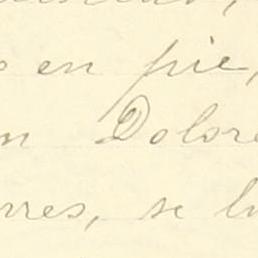 en pie,
n Dolore
rres, se